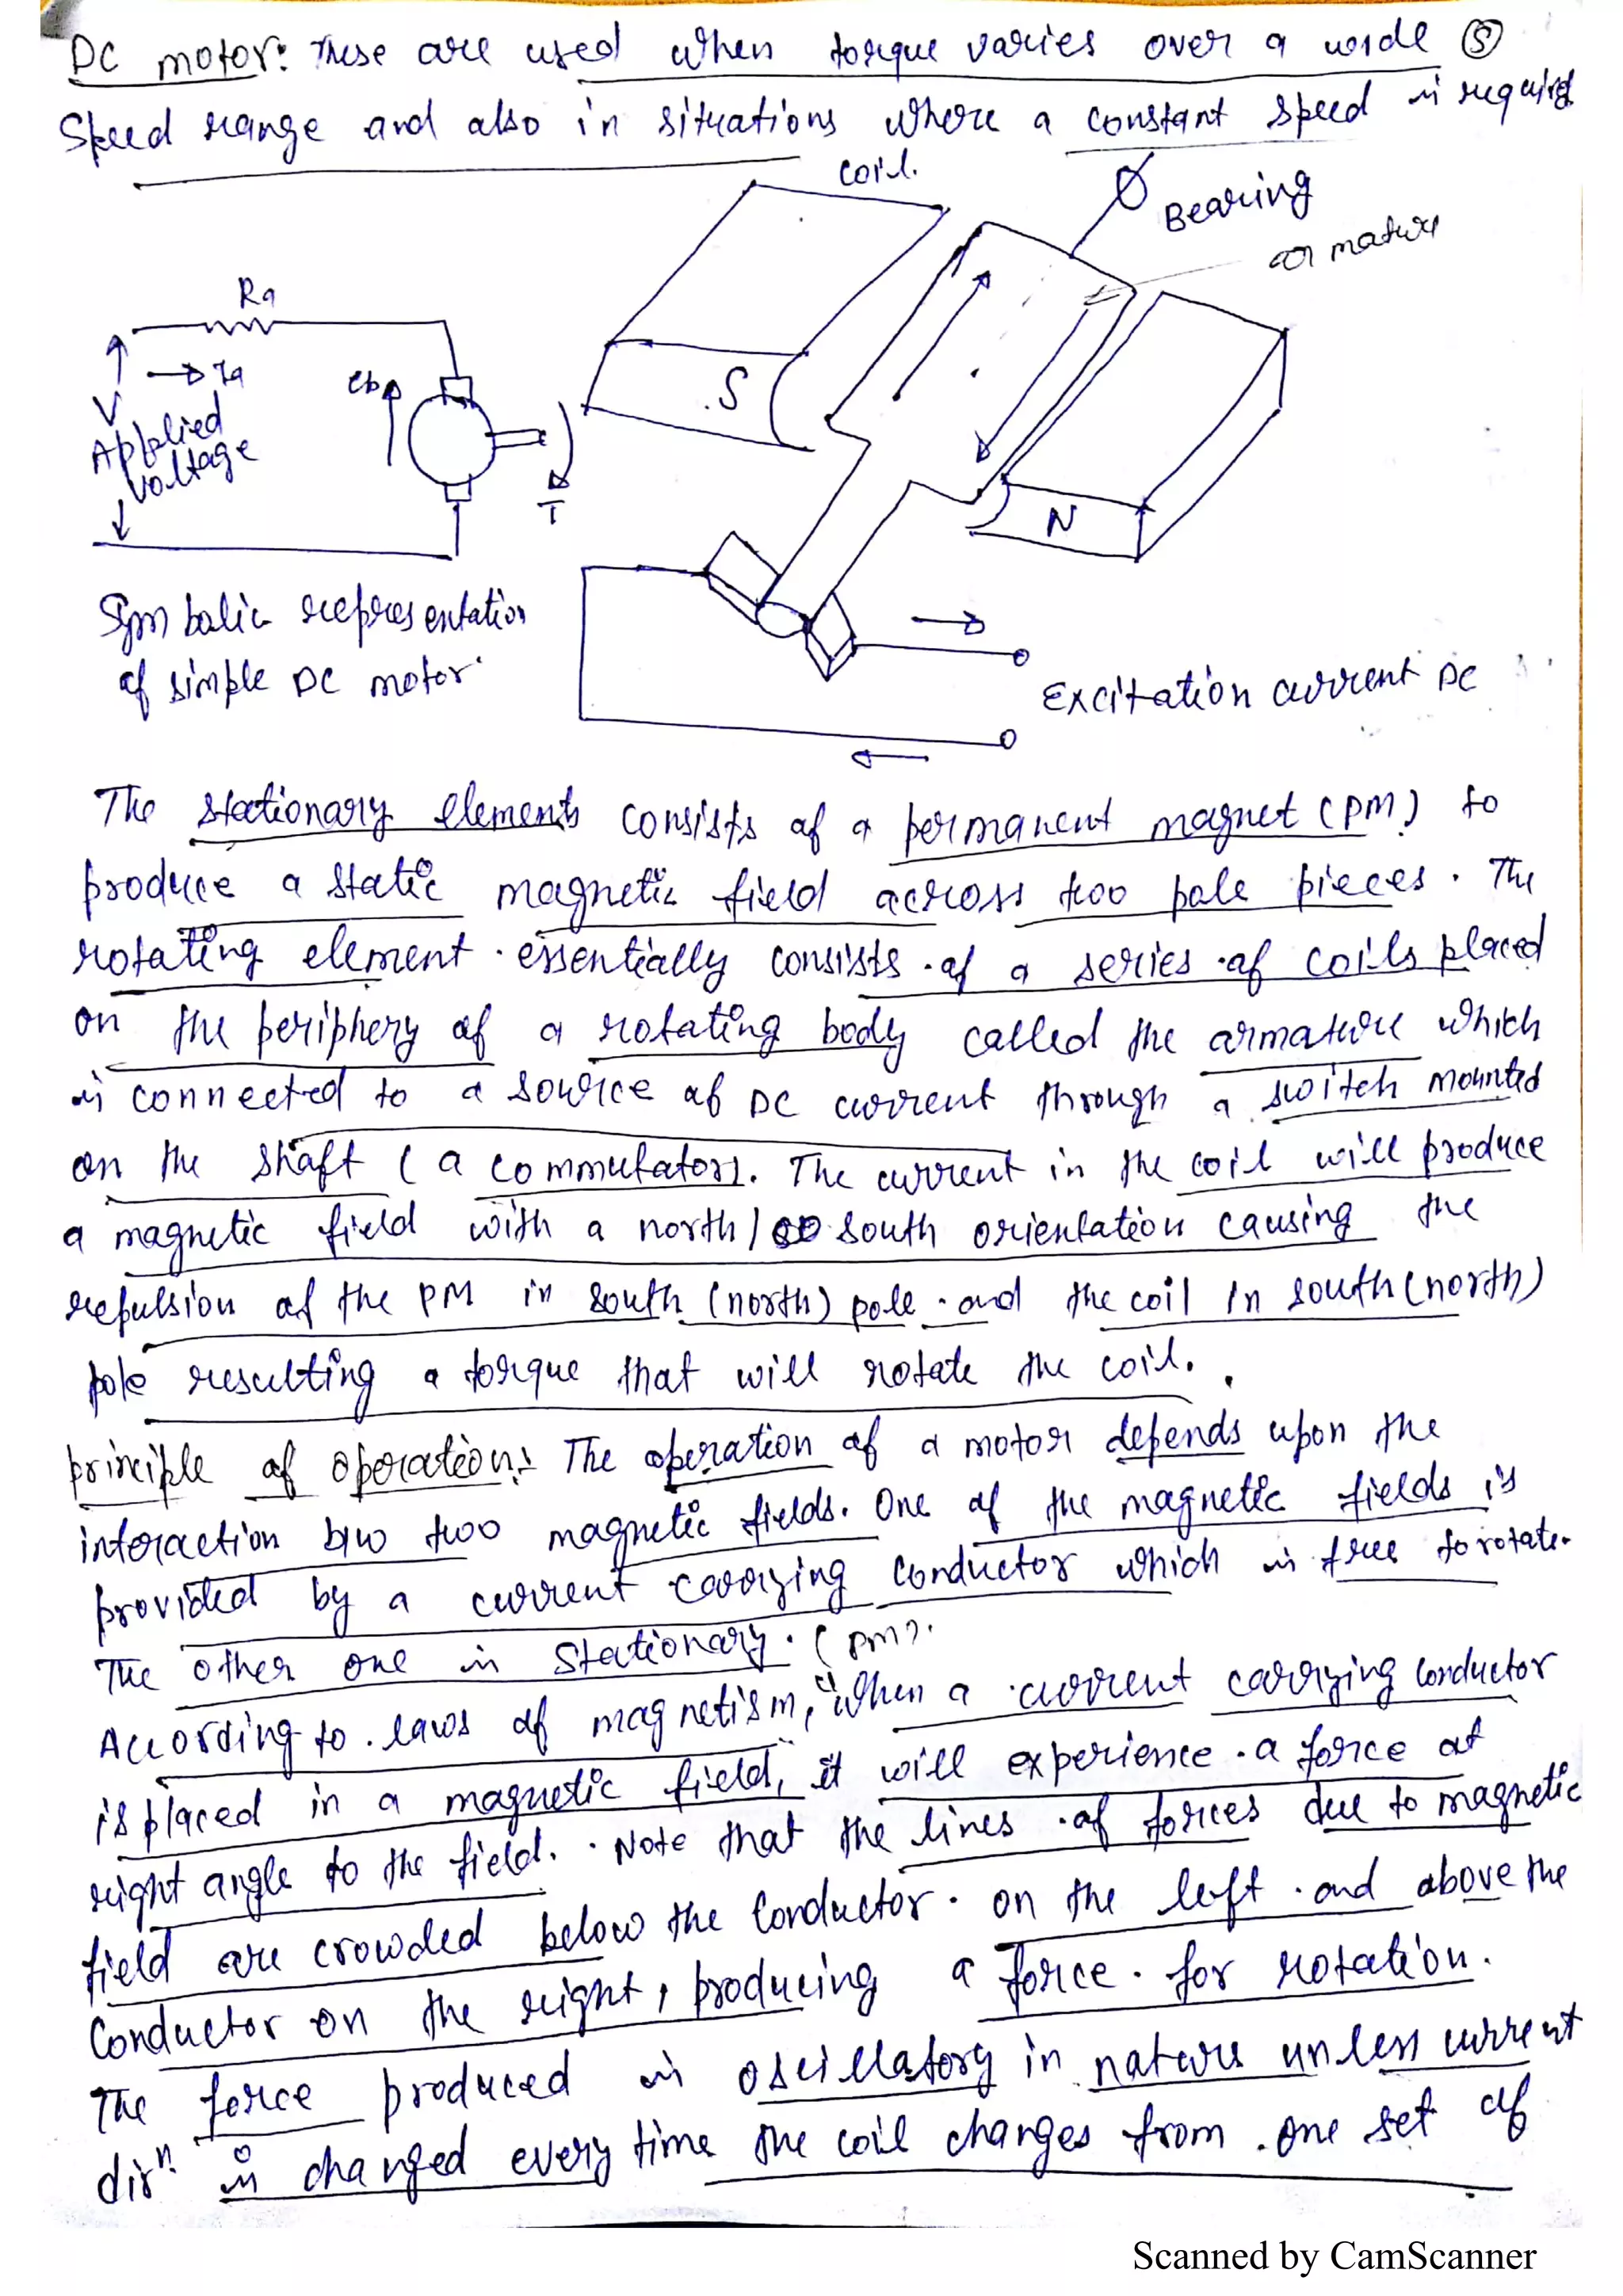 DC motor: These are used when torque varies over a wide (5)
Speed range and also in situations where a constant speed is required
coil.
Bearing
armature
Ra
Ia
V
Applied
voltage
eb
T
S
N
Symbolic representation
of simple DC motor.
Excitation current DC
The stationary elements consists of a permanent magnet (PM) to
produce a static magnetic field across two pole pieces. The
rotating element essentially consists of a series of coils placed
on the periphery of a rotating body called the armature which
is connected to a source of DC current through a switch mounted
on the shaft (a commutator). The current in the coil will produce
a magnetic field with a north/ south orientation causing the
repulsion of the PM in south (north) pole and the coil in south (north)
pole resulting a torque that will rotate the coil.
principle of operation: The operation of a motor depends upon the
interaction b/w two magnetic fields. One of the magnetic fields is
provided by a current carrying conductor which is free to rotate.
The other one is stationary. (PM).
According to laws of magnetism, "When a current carrying conductor
is placed in a magnetic field, it will experience a force at
right angle to the field. Note that the lines of forces due to magnetic
field are crowded below the conductor on the left and above the
Conductor on the right, producing a force for rotation.
The force produced is oscillatory in nature unless current
dirn. is changed every time the coil changes from one set of
Scanned by CamScanner